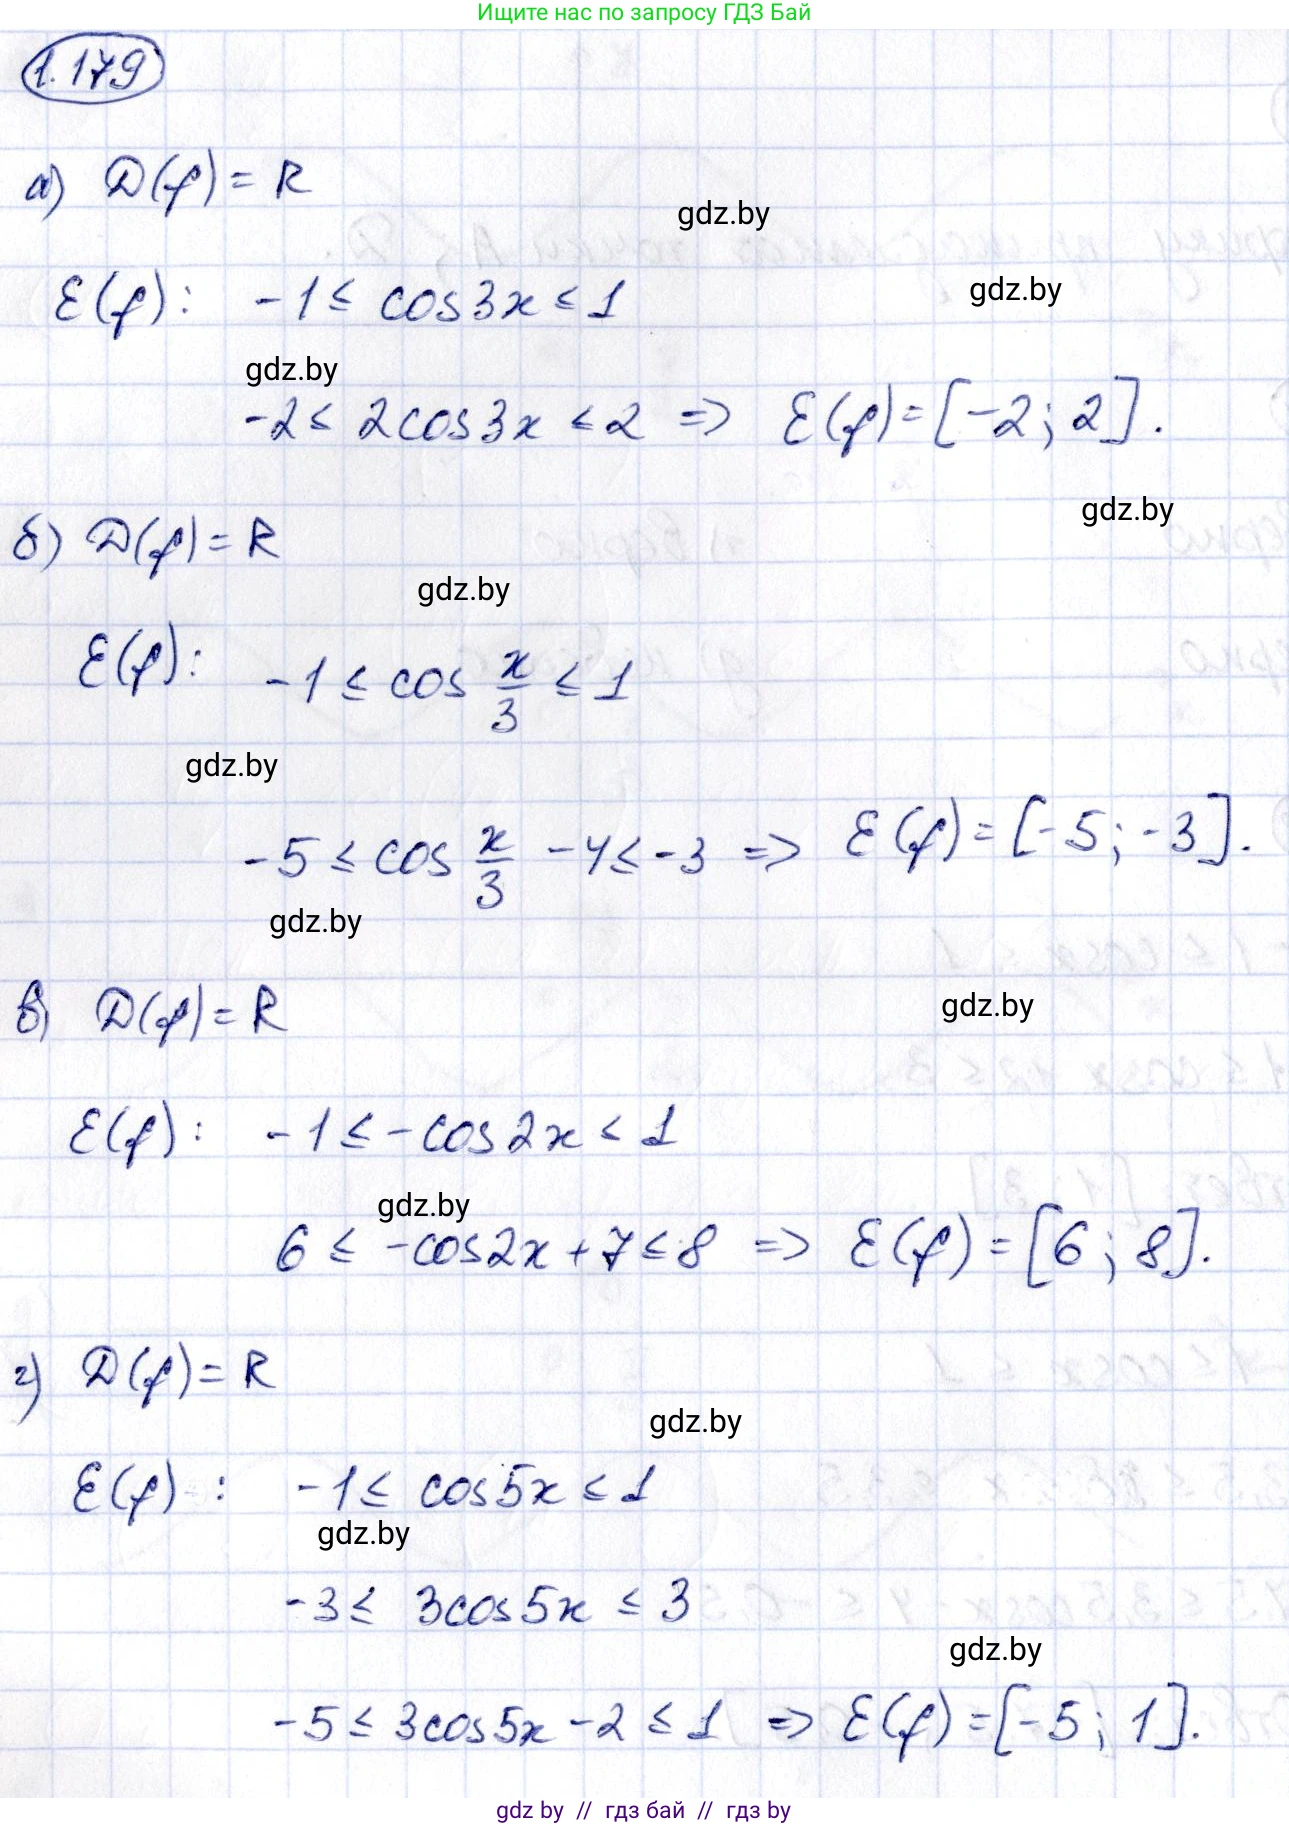 Ищите нас по запросу ГДЗ Бай
1.179
а) D(f) = R
gdz.by
E(f): -1 ≤ cos3x ≤ 1
gdz.by
gdz.by
-2 ≤ 2cos3x ≤ 2 => E(f) = [-2; 2].
gdz.by
б) D(f) = R
gdz.by
E(f): -1 ≤ cos x/3 ≤ 1
gdz.by
-5 ≤ cos x/3 - 4 ≤ -3 => E(f) = [-5; -3].
gdz.by
в) D(f) = R
gdz.by
E(f): -1 ≤ -cos2x ≤ 1
gdz.by
6 ≤ -cos2x + 7 ≤ 8 => E(f) = [6; 8].
г) D(f) = R
gdz.by
E(f): -1 ≤ cos5x ≤ 1
gdz.by
-3 ≤ 3cos5x ≤ 3
gdz.by
-5 ≤ 3cos5x - 2 ≤ 1 => E(f) = [-5; 1].
gdz by // гдз бай // гдз by